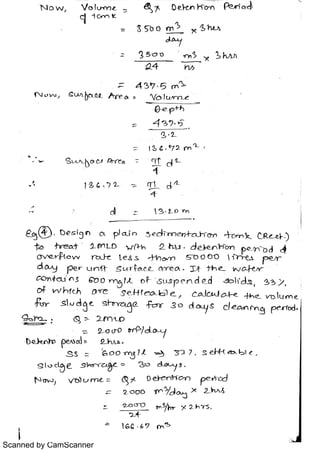 Now, Volume of tank = Q × Detention Period
= 3500 m³/day × 3 hrs
= 3500/24 m³/hr × 3 hrs
= 437.5 m³
Now, Surface Area = Volume/Depth
= 437.5/3.2
= 136.72 m².
∴ Surface Area = π/4 d²
∴ 136.72 = π/4 d²
∴ d = 13.20 m
Eg ④. Design a plain sedimentation tank (Rect.)
to treat 2 MLD with 2 hrs. detention period &
overflow rate less than 50000 litres per
day per unit surface area. If the water
contains 600 mg/L of suspended solids, 33%
of which are settleable, calculate the volume
for sludge storage for 30 days cleaning period.
Soln. : Q = 2 MLD
= 2000 m³/day
Detention period = 2 hrs.
SS = 600 mg/L → 33%. settleable.
Sludge storage = 30 days.
Now, volume = Q × Detention period
= 2000 m³/day × 2 hrs
= 2000/24 m³/hr × 2 hrs.
= 166.67 m³
Scanned by CamScanner